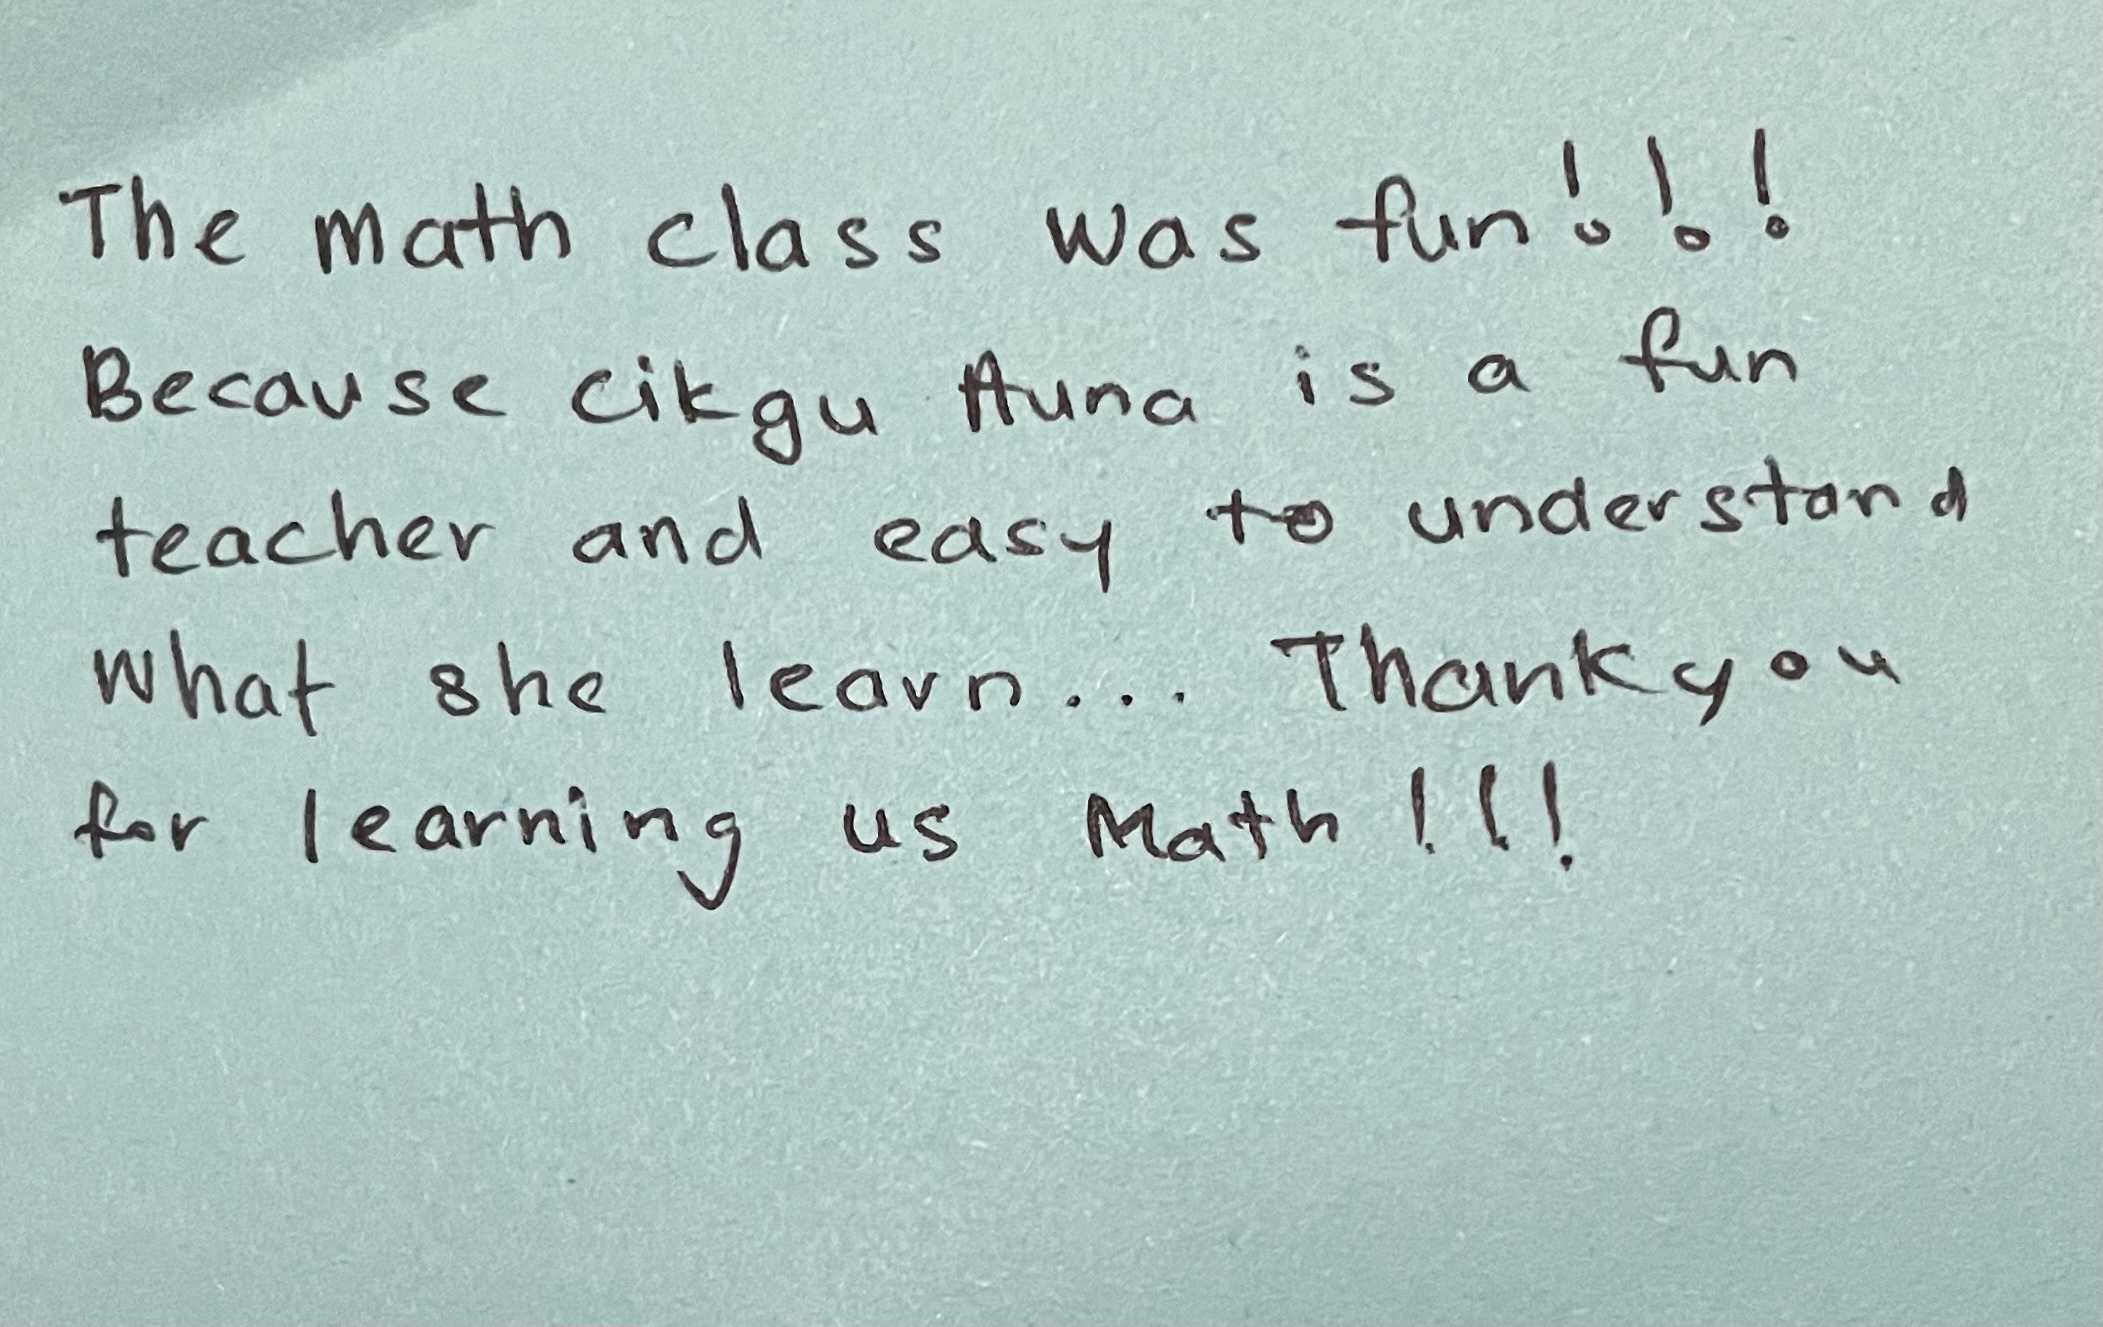 The math class was fun!!!
Because cikgu Auna is a fun
teacher and easy to understand
what she learn... Thank you
for learning us Math!!!